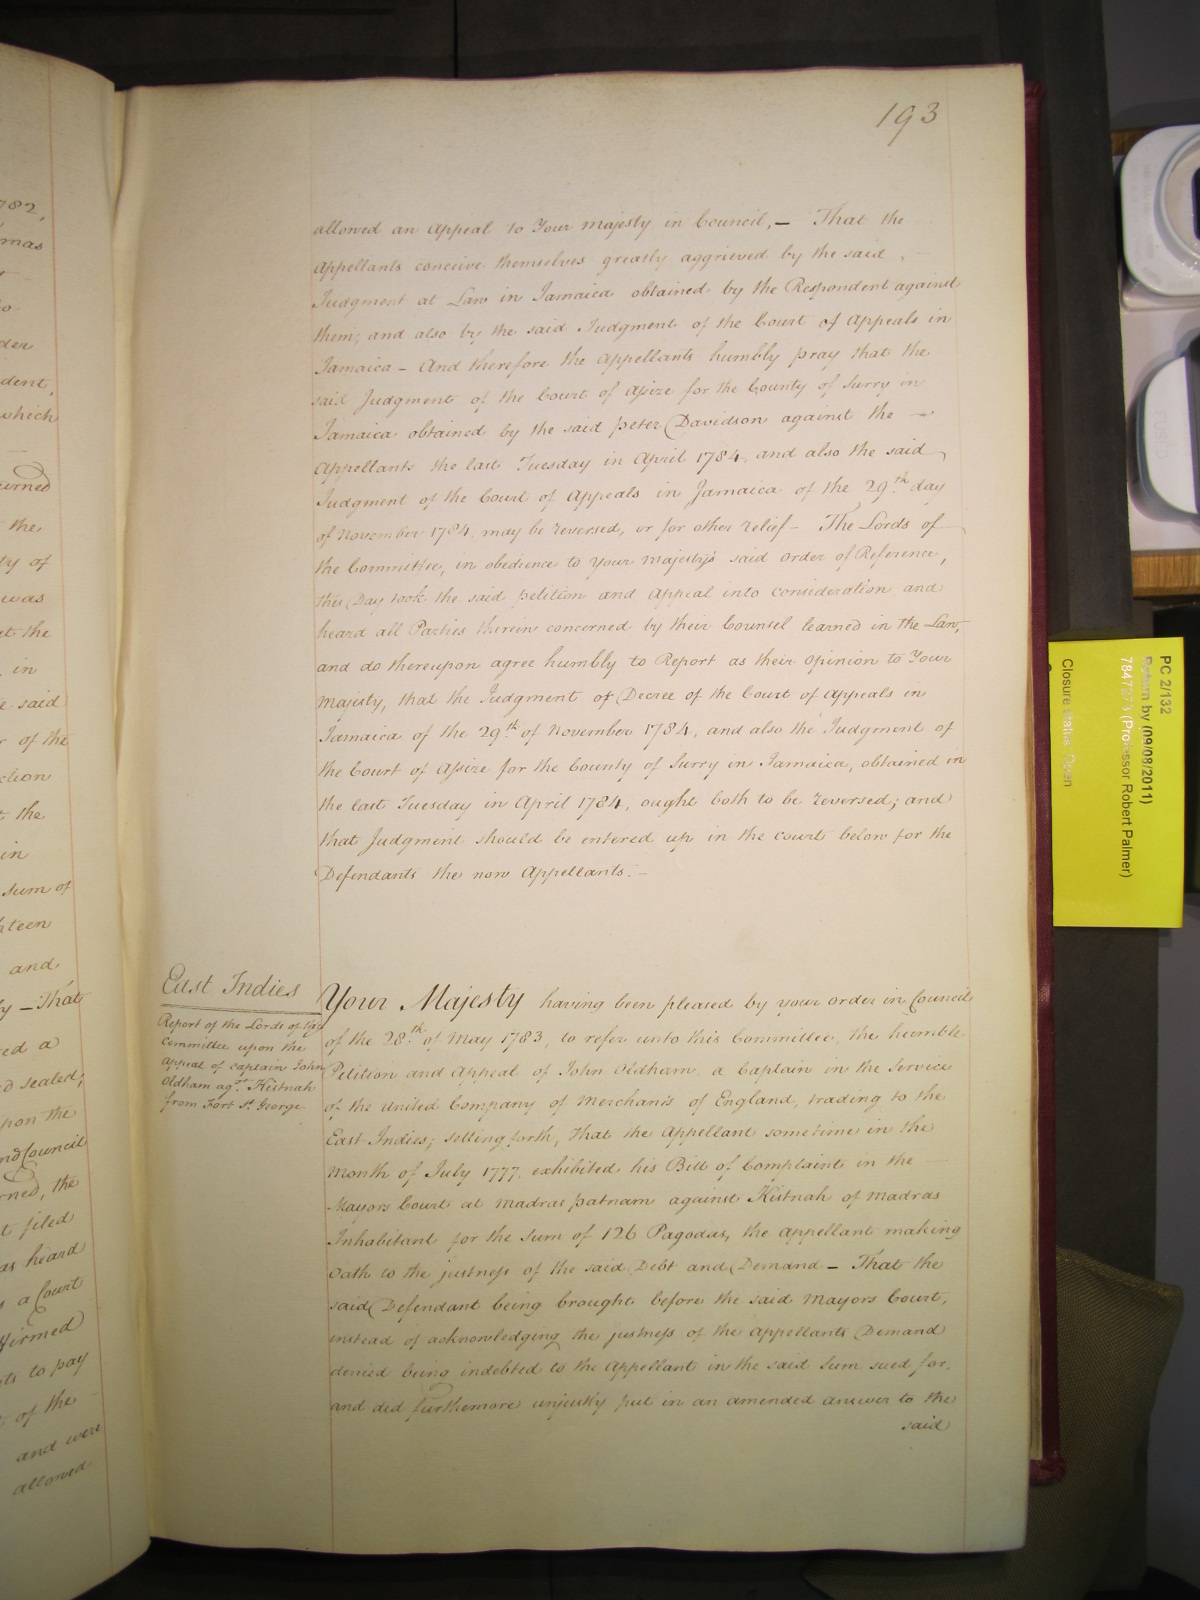 193
allowed an Appeal to Your Majesty in Council, — That the
Appellants conceive themselves greatly aggrieved by the said
Judgment at Law in Jamaica obtained by the Respondent against
them; and also by the said Judgment of the Court of Appeals in
Jamaica – And therefore the Appellants humbly pray that the
said Judgment of the Court of Assize for the County of Surry in
Jamaica obtained by the said Peter Davidson against the —
Appellants the last Tuesday in April 1784, and also the said
Judgment of the Court of Appeals in Jamaica of the 29.th day
of November 1784, may be reversed, or for other relief – The Lords of
the Committee, in obedience to Your Majesty's said Order of Reference,
this Day took the said Petition and Appeal into consideration and
heard all Parties therein concerned by their Counsel learned in the Law,
and do thereupon agree humbly to Report as their Opinion to Your
Majesty, that the Judgment or Decree of the Court of Appeals in
Jamaica of the 29.th of November 1784, and also the Judgment of
the Court of Assize for the County of Surry in Jamaica, obtained in
the last Tuesday in April 1784, ought both to be reversed; and
that Judgment should be entered up in the court below for the
Defendants the now Appellants. —
East Indies
Report of the Lords of the
Committee upon the
appeal of Captain John
Oldham ag.st Kistnah
from Fort S.t George
Your Majesty having been pleased by your order in Council
of the 28.th of May 1783, to refer unto this Committee, the humble
Petition and Appeal of John Oldham, a Captain in the Service
of the United Company of Merchants of England, trading to the
East Indies; setting forth, That the Appellant sometime in the
Month of July 1777, exhibited his Bill of Complaint in the
Mayors Court at Madras patnam against Kistnah of Madras
Inhabitant for the Sum of 126 Pagodas, the Appellant making
Oath to the justness of the said Debt and Demand – That the
said Defendant being brought before the said Mayors Court,
instead of acknowledging the justness of the Appellants Demand
denied being indebted to the Appellant in the said Sum sued for,
and did furthermore unjustly put in an amended answer to the
said
782,
mas
der
dent,
which
the
ty of
was
at the
in
said
of the
ction
the
in
sum of
hteen
and
– That
ed a
sealed;
pon the
nd Council
rned, the
filed
as heard
a Court
ffirmed
to pay
of the
and were
allowed
PC 2/132
Return by (09/08/2011)
7847273 (Professor Robert Palmer)
Closure status Open